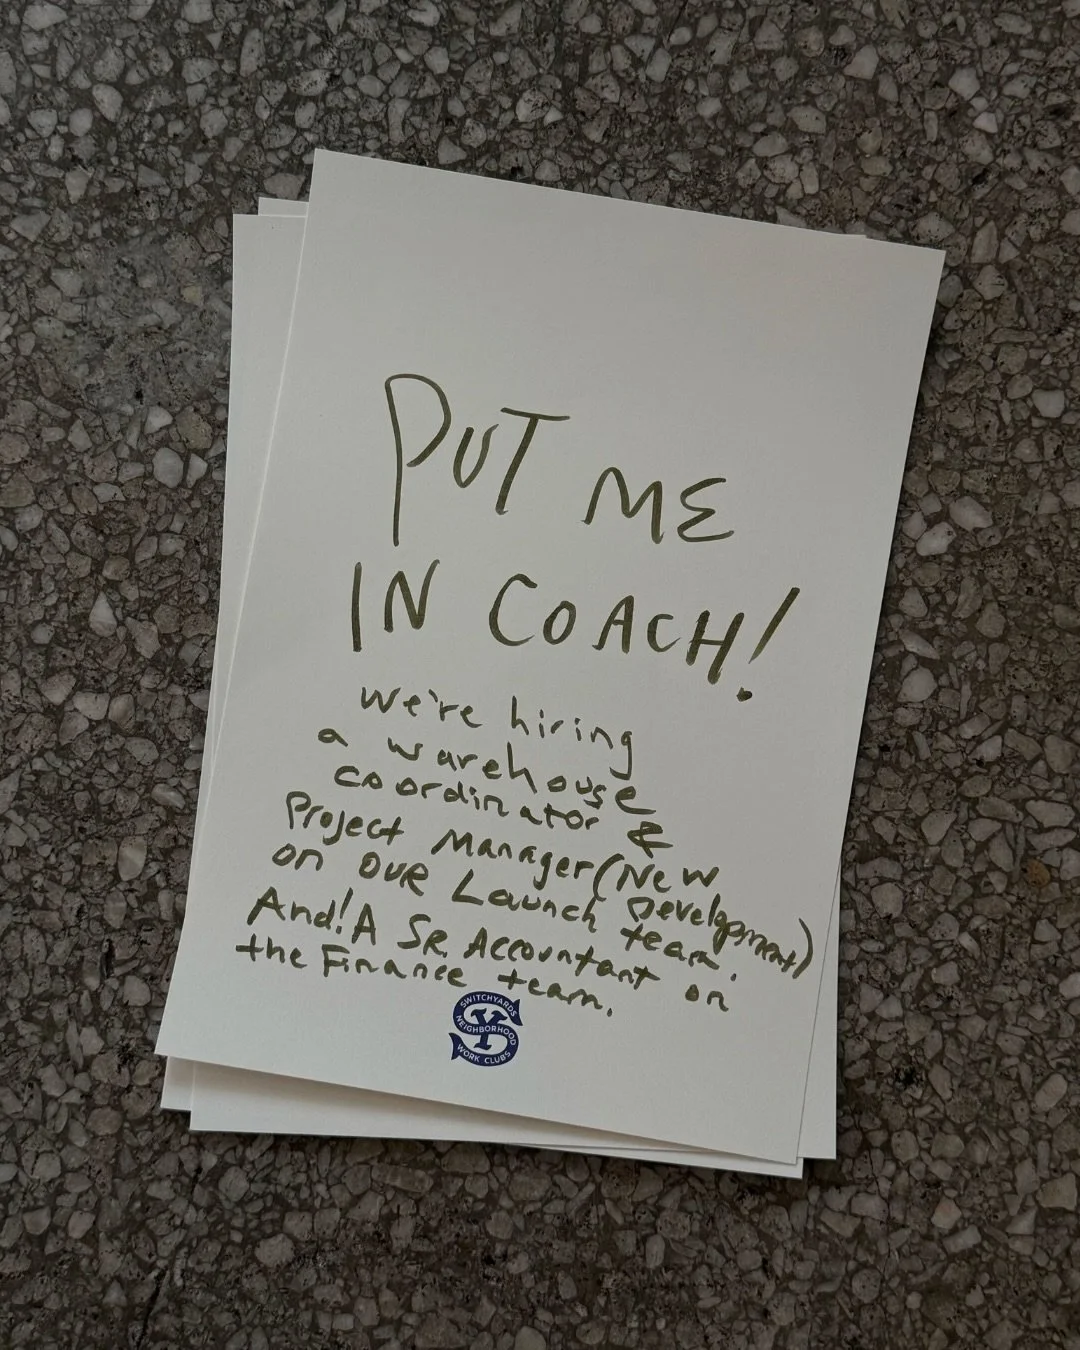 PUT ME
IN COACH!
We're hiring
a warehouse
coordinator &
Project Manager (New Development)
on our Launch team.
And! A Sr. Accountant on
the Finance team.
SWITCHYARDS
SY
NEIGHBORHOOD
WORK CLUBS